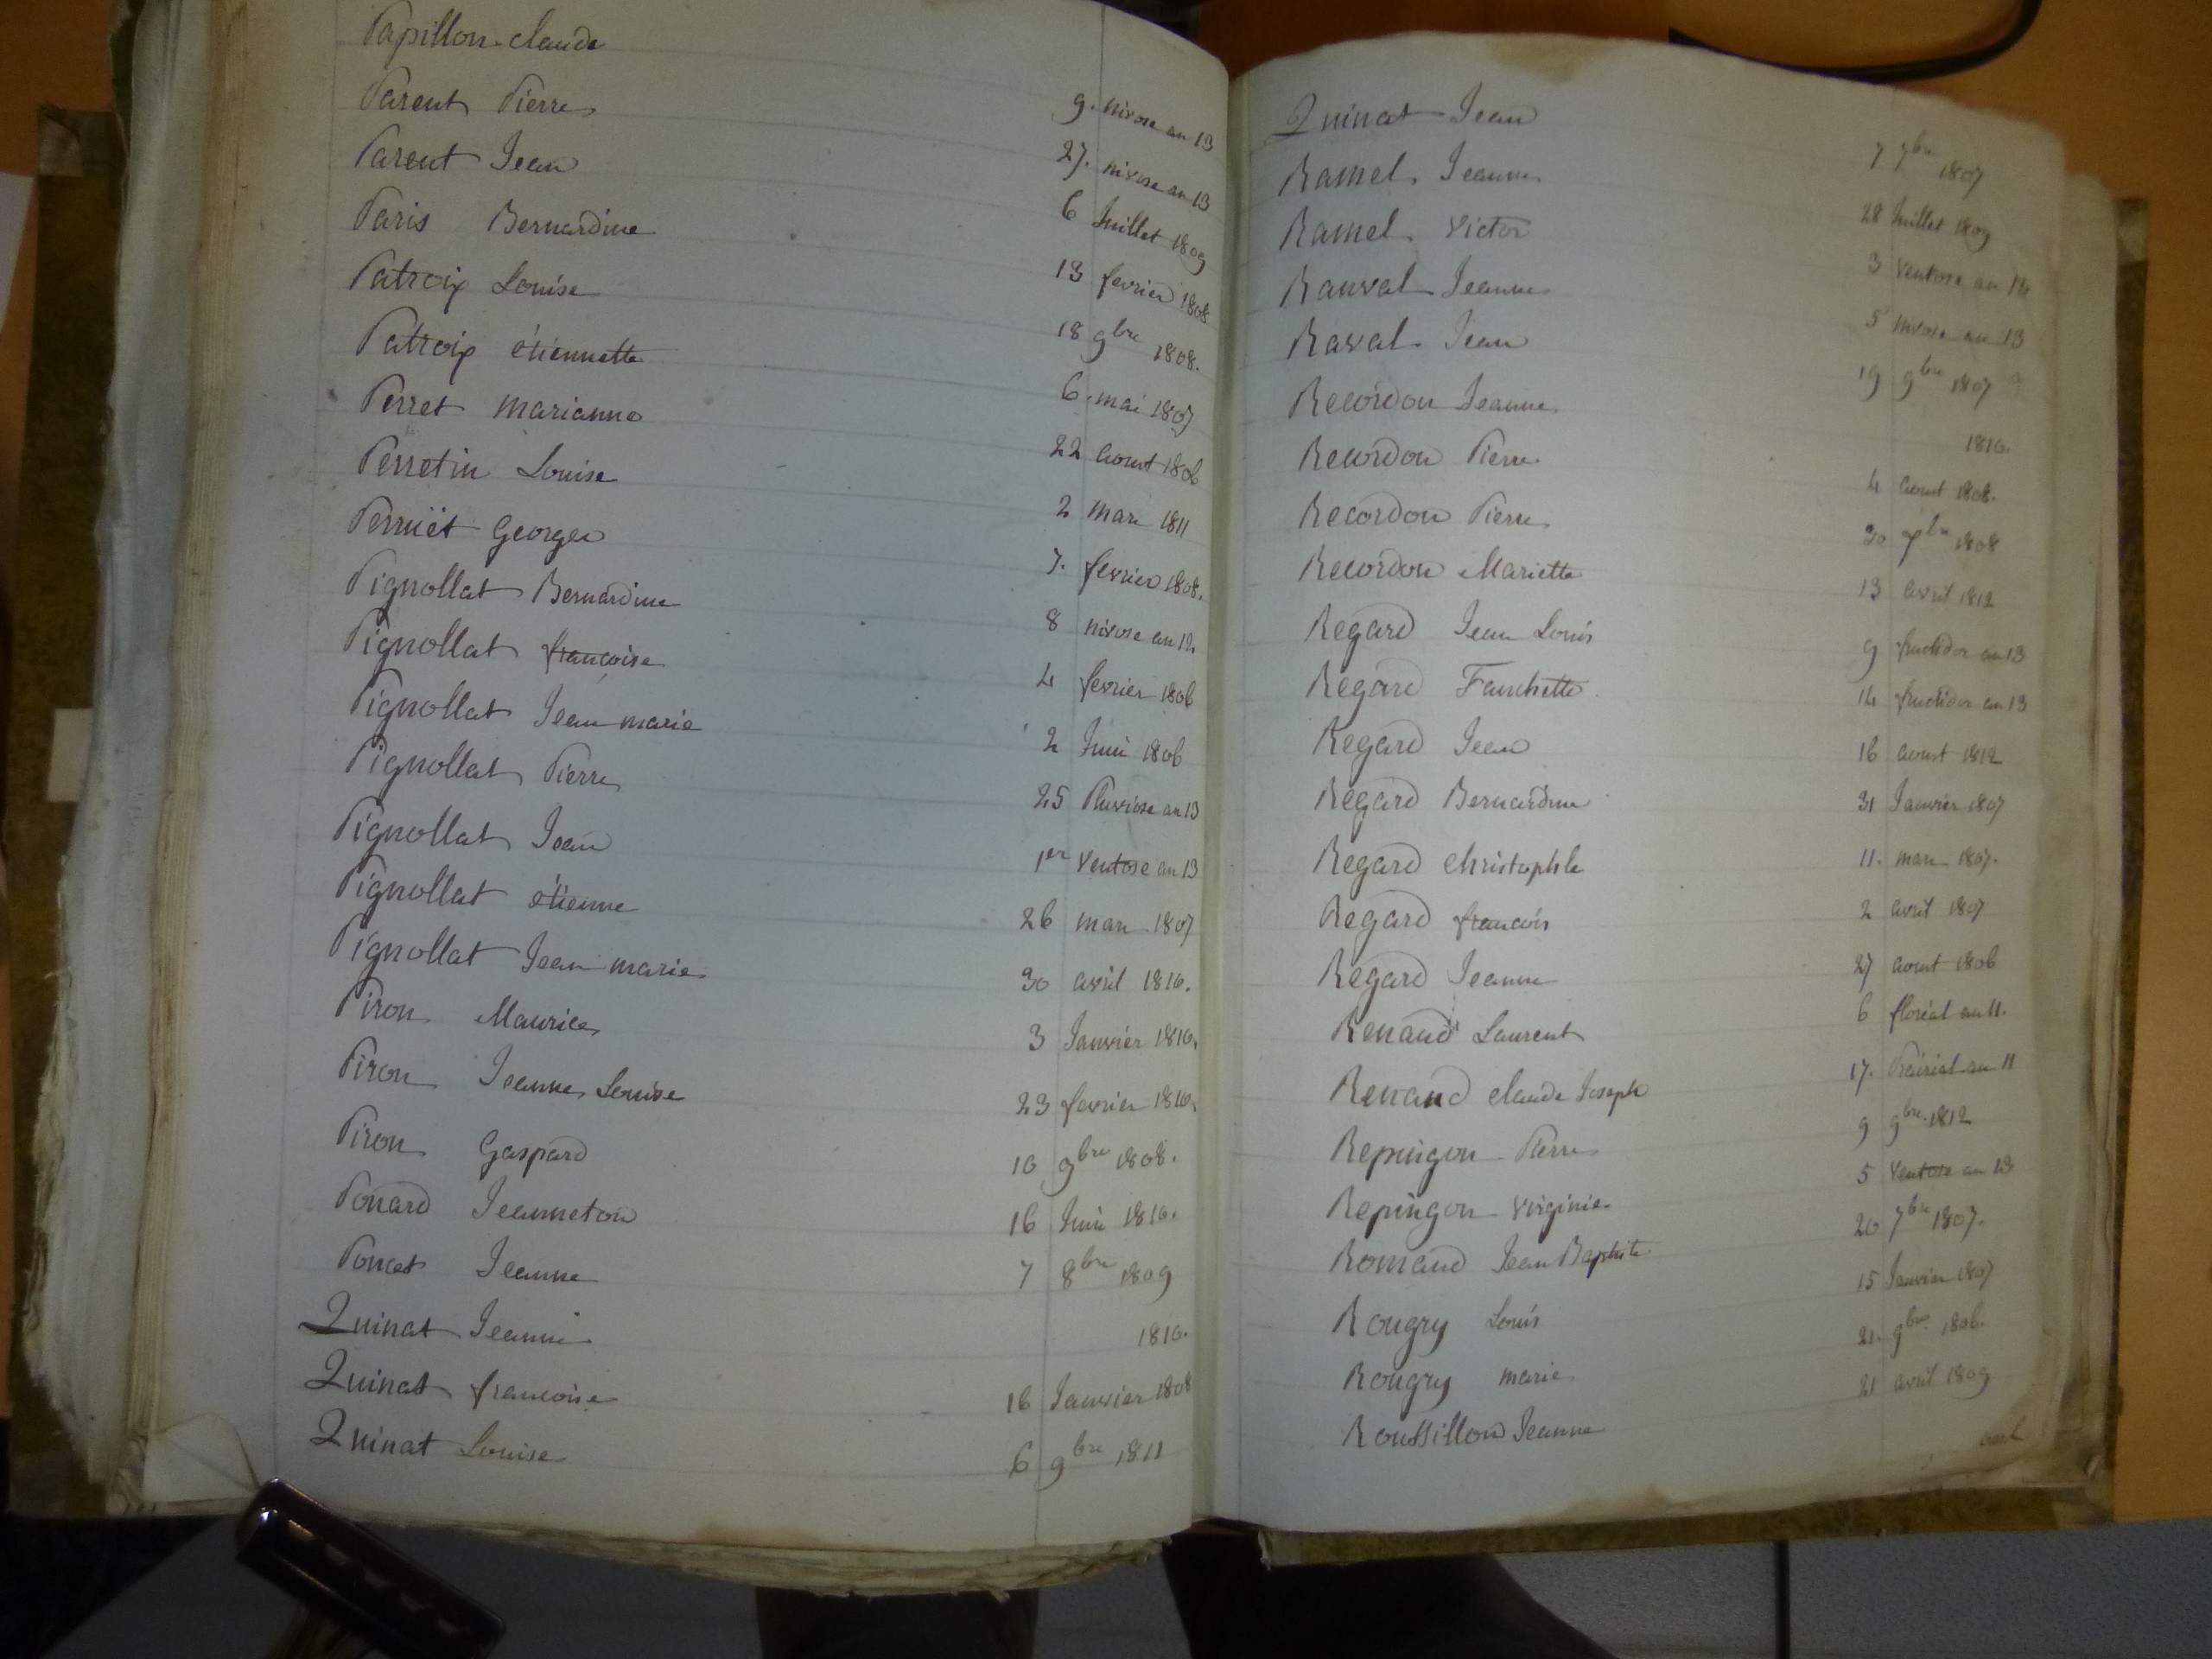 Papillon Claude 9. nivose an 13
Parent Pierre 27. nivose an 13
Parent Jean 6 Juillet 1809
Paris Bernardine 13 fevrier 1808
Patroix Louise 18 9bre 1808.
Patroix étiennette 6. mai 1807
Perret marianne 22 aoust 1806
Perretin Louise 2 mars 1811
Perruët Georges 7. fevrier 1808.
Pignollat Bernardine 8 nivose an 12
Pignollat francoise 4 fevrier 1806
Pignollat Jean marie 2 Juin 1806
Pignollat Pierre 25 Pluviose an 13
Pignollat Jean 1er ventose an 13
Pignollat étienne 26 mars 1807
Pignollat Jean marie 30 avril 1810.
Piron Maurice 3 Janvier 1810.
Piron Jeanne Louise 23 fevrier 1810.
Piron Gaspard 10 9bre 1808.
Ponard Jeanneton 16 Juin 1810.
Poncet Jeanne 7 8bre 1809
Quinat Jeanne 1810.
Quinat francoise 16 Janvier 1808
Quinat Louise 6 9bre 1811
Quinat Jean 7 7bre 1807
Ramel Jeanne 28 Juillet 1809
Ramel Victor 3 ventose an 12
Rauval Jeanne 5 nivose an 13
Raval Jean 19 9bre 1807
Recordon Jeanne 1810.
Recordon Pierre 4 aoust 1808.
Recordon Pierre 30 7bre 1808
Recordon Mariette 13 avril 1812
Regard Jean Louis 9 fructidor an 13
Regard Fanchette 14 fructidor an 13
Regard Jean 16 aoust 1812
Regard Bernardine 31 Janvier 1807
Regard christophle 11. mars 1807.
Regard francois 2 avril 1807
Regard Jeanne 27 aoust 1806
Renaud Laurent 6 floréal an 11.
Renaud claude Joseph 17. Prairial an 11
Repingon Pierre 9 9bre 1812
Repingon virginie 5 ventose an 13
Romand Jean Baptiste 20 7bre 1807.
Rougry Louis 15 Janvier 1807
Rougry marie 21. 9bre 1806.
Roussillon Jeanne 21 avril 1809